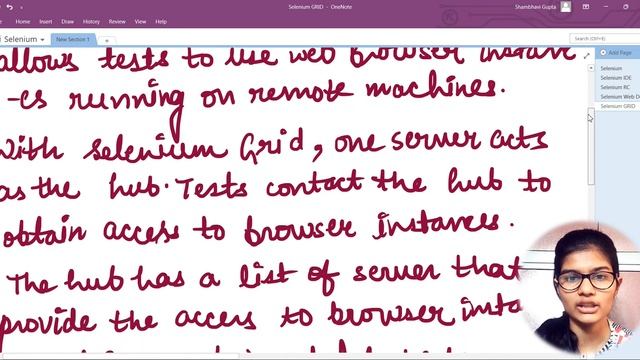 Selenium GRID - OneNote
Shambhavi Gupta
Home Insert Draw History Review View Help
Selenium
New Section 1
+
Search (Ctrl+E)
Add Page
Selenium
Selenium IDE
Selenium RC
Selenium Web D
Selenium GRID
allows tests to use web browser instanc
-es running on remote machines.
With Selenium Grid, one server acts
as the hub. Tests contact the hub to
obtain access to browser instances.
The hub has a list of server that
provide the access to browser insta